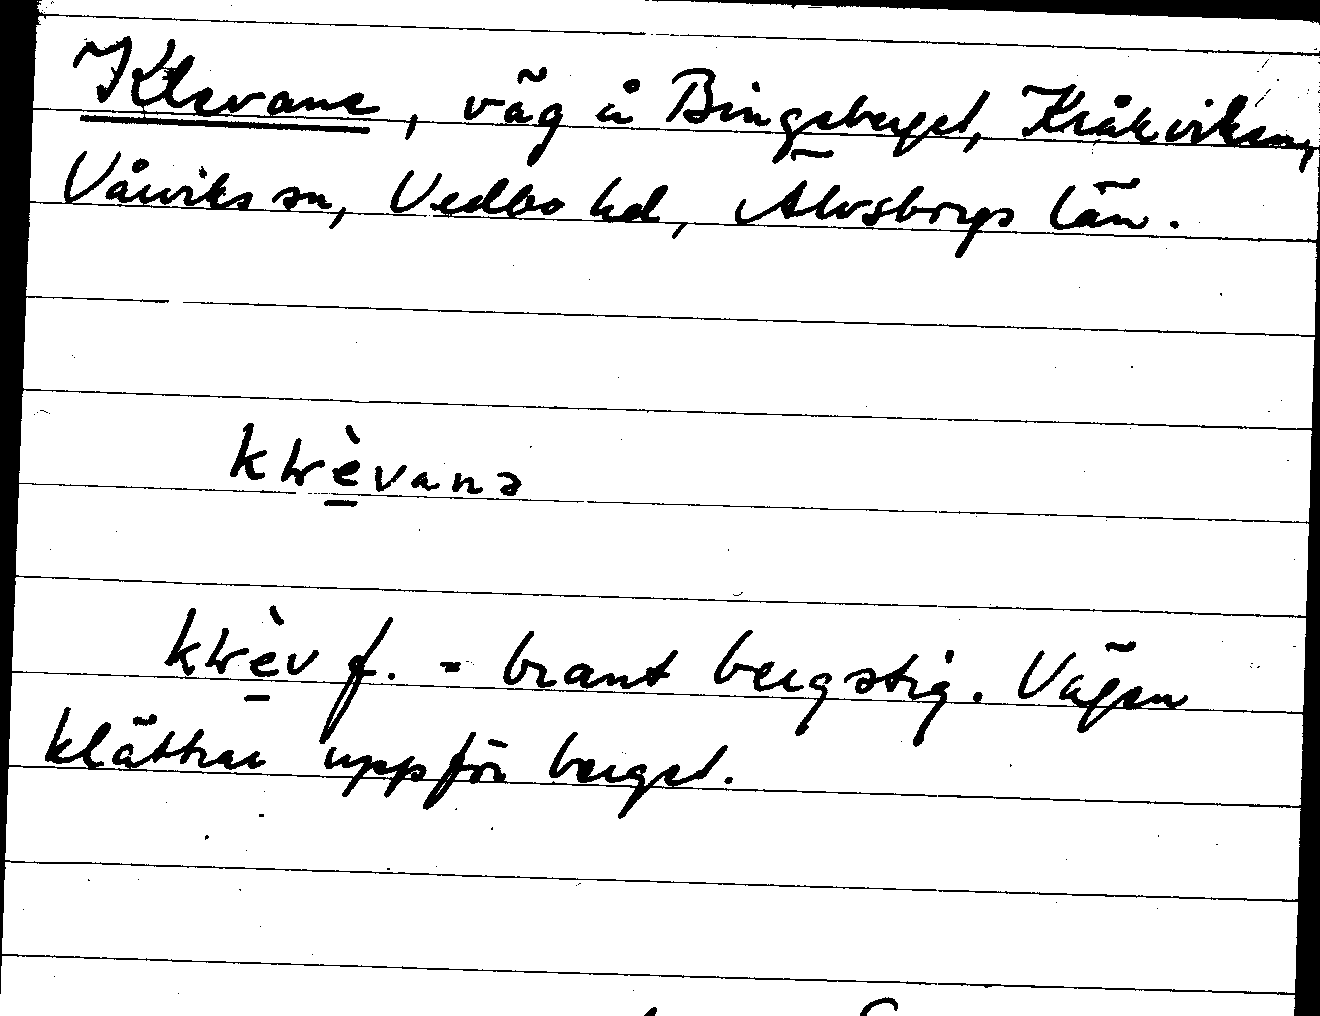 Klevane, väg å Bingeberget, Kråkviken,
Vårviks sn, Vedbo hd, Älvsborgs län.
kḷrèvanə
kḷrèv f. = brant bergstig. Vägen
klättrar uppför berget.